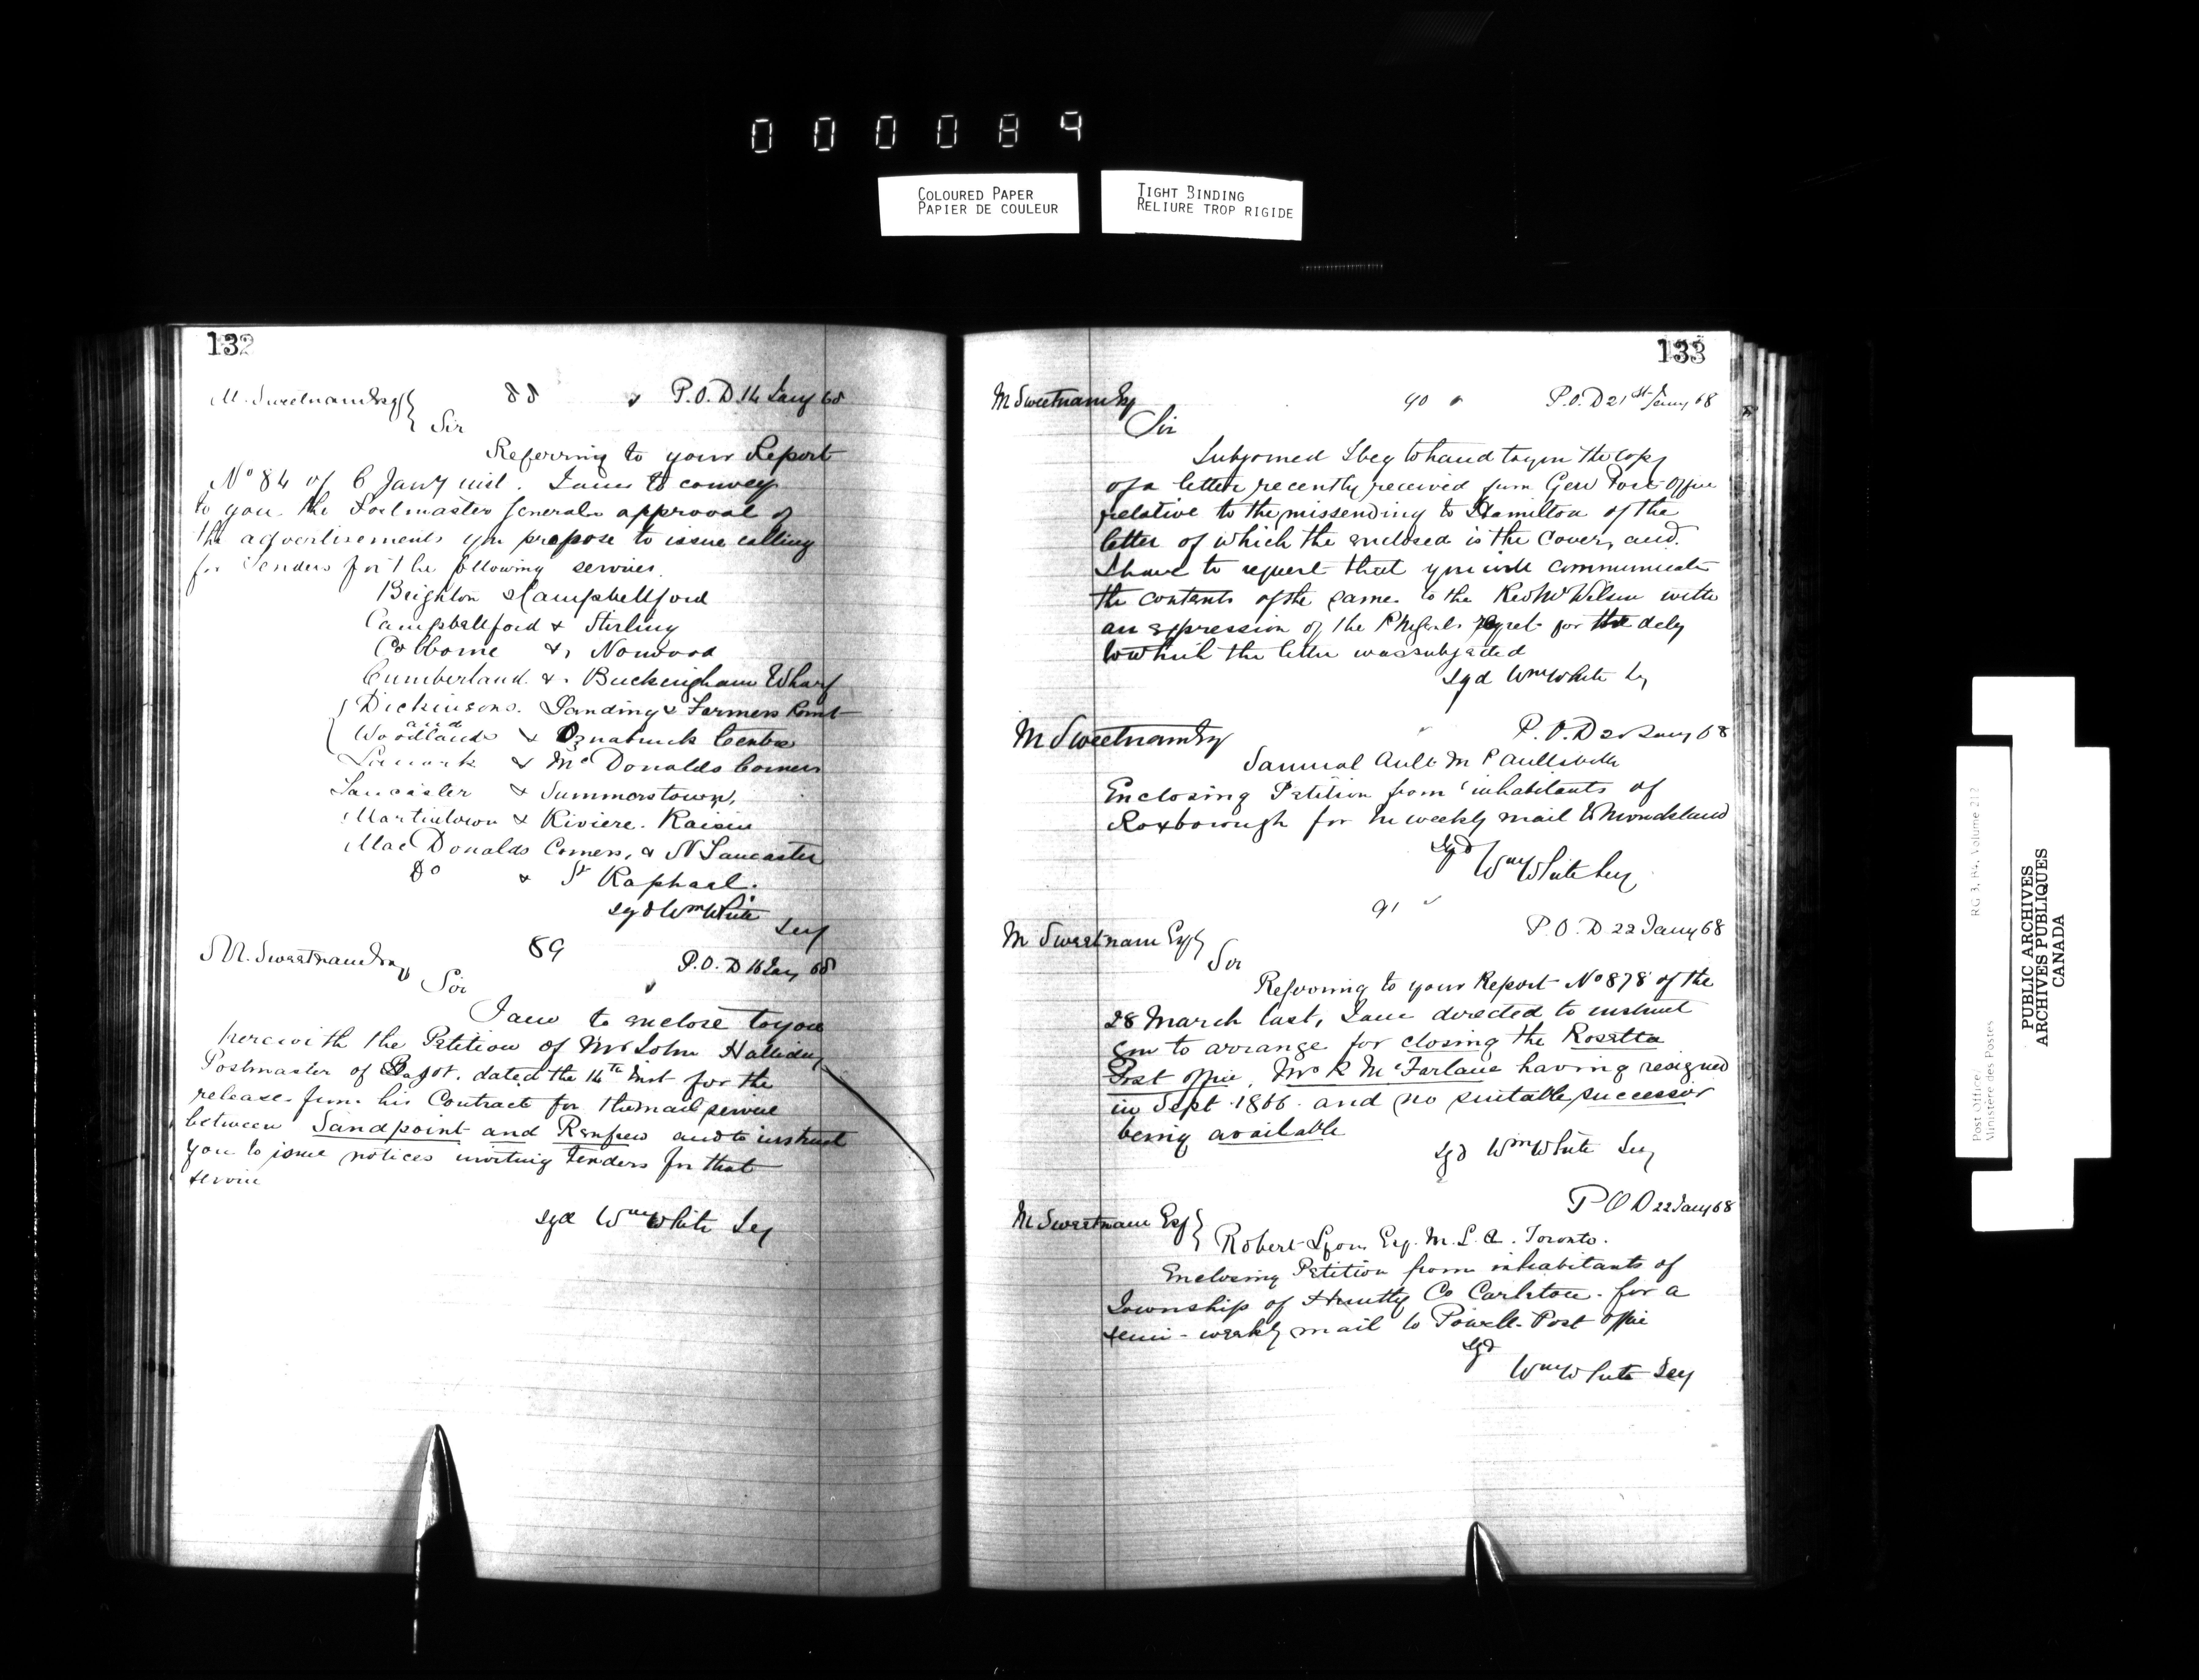 000089
COLOURED PAPER
PAPIER DE COULEUR
TIGHT BINDING
RELIURE TROP RIGIDE
132
M. Sweetnam Esq
88
P.O.D. 14 Jany 68
Sir
Referring to your Report
No 84 of 6 Jany inst. I am to convey
to you the Postmaster Generals approval of
the advertisements you propose to issue calling
for Tenders for the following services
Brighton & Campbellford
Campbellford & Stirling
Colborne & Norwood
Cumberland & Buckingham Wharf
Dickinsons Landing & Farmers Point
and
Woodlands & Osnabruck Centre
Lanark & McDonalds Corners
Lancaster & Summerstown,
Martintown & Riviere Raisin
MacDonalds Corners, & N Lancaster
Do & St Raphael.
sgd Wm White
Secy
M. Sweetnam Esq
89
P.O.D 16 Jany 68
Sir
I am to enclose to you
herewith the Petition of Mr John Halliday
Postmaster of Bagot, dated the 14th inst for the
release from his Contract for the mail service
between Sandpoint and Renfrew and to instruct
you to issue notices inviting tenders for that
service
sgd Wm White Secy
133
M Sweetnam Esq
90
P.O.D 21st Jany 68
Sir
Subjoined I beg to hand to you the copy
of a letter recently received from Genl Post Office
relative to the missending to Hamilton of the
letter of which the enclosed is the cover, and
I have to request that you will communicate
the contents of the same to the Revd Mr Wilson with
an expression of the P M Genls regret for the delay
to which the letter was subjected
sgd Wm White Sy
M Sweetnam Esq
P.O.D Jany 68
Samuel Ault M P Aultsville
Enclosing Petition from inhabitants of
Roxborough for tri weekly mail to Monckland
sgd
Wm White Secy
91
M Sweetnam Esq
P.O.D 22 Jany 68
Sir
Referring to your Report No 878 of the
28 March last, I am directed to instruct
you to arrange for closing the Rosetta
Post Office, Mr R McFarlane having resigned
in Sept 1866 and no suitable successor
being available
sgd Wm White Secy
P O D 22 Jany 68
M Sweetnam Esq
Robert Lyon Esq. M.L.A. Toronto.
Enclosing Petition from inhabitants of
Township of Huntly Co Carleton for a
semi-weekly mail to Powell Post Office
sgd
Wm White Secy
Post Office
RG 3, B4, Volume 212
Ministère des Postes
PUBLIC ARCHIVES
ARCHIVES PUBLIQUES
CANADA